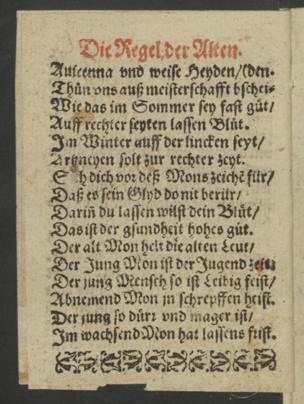 Die Regel der Alten.
Auicenna vnd weise Heyden/(den.
Thün vns auß meisterschafft bschei-
Wie das im Sommer sey fast güt/
Auff rechter seyten lassen Blüt.
Im Winter auff der lincken seyt/
Artzneyen solt zur rechter zeyt.
Sih dich vor deß Mons zeichẽ für/
Daß es sein Glyd do nit berür/
Dariñ du lassen wilst dein Blüt/
Das ist der gsundheit hohes güt.
Der alt Mon helt die alten Leut/
Der Jung Mon ist der Jugend zeit.
Der jung Mensch so ist Leibig feist/
Abnemend Mon jn schrepffen heist.
Der jung so dürr vnd mager ist/
Im wachsend Mon hat lassens frist.